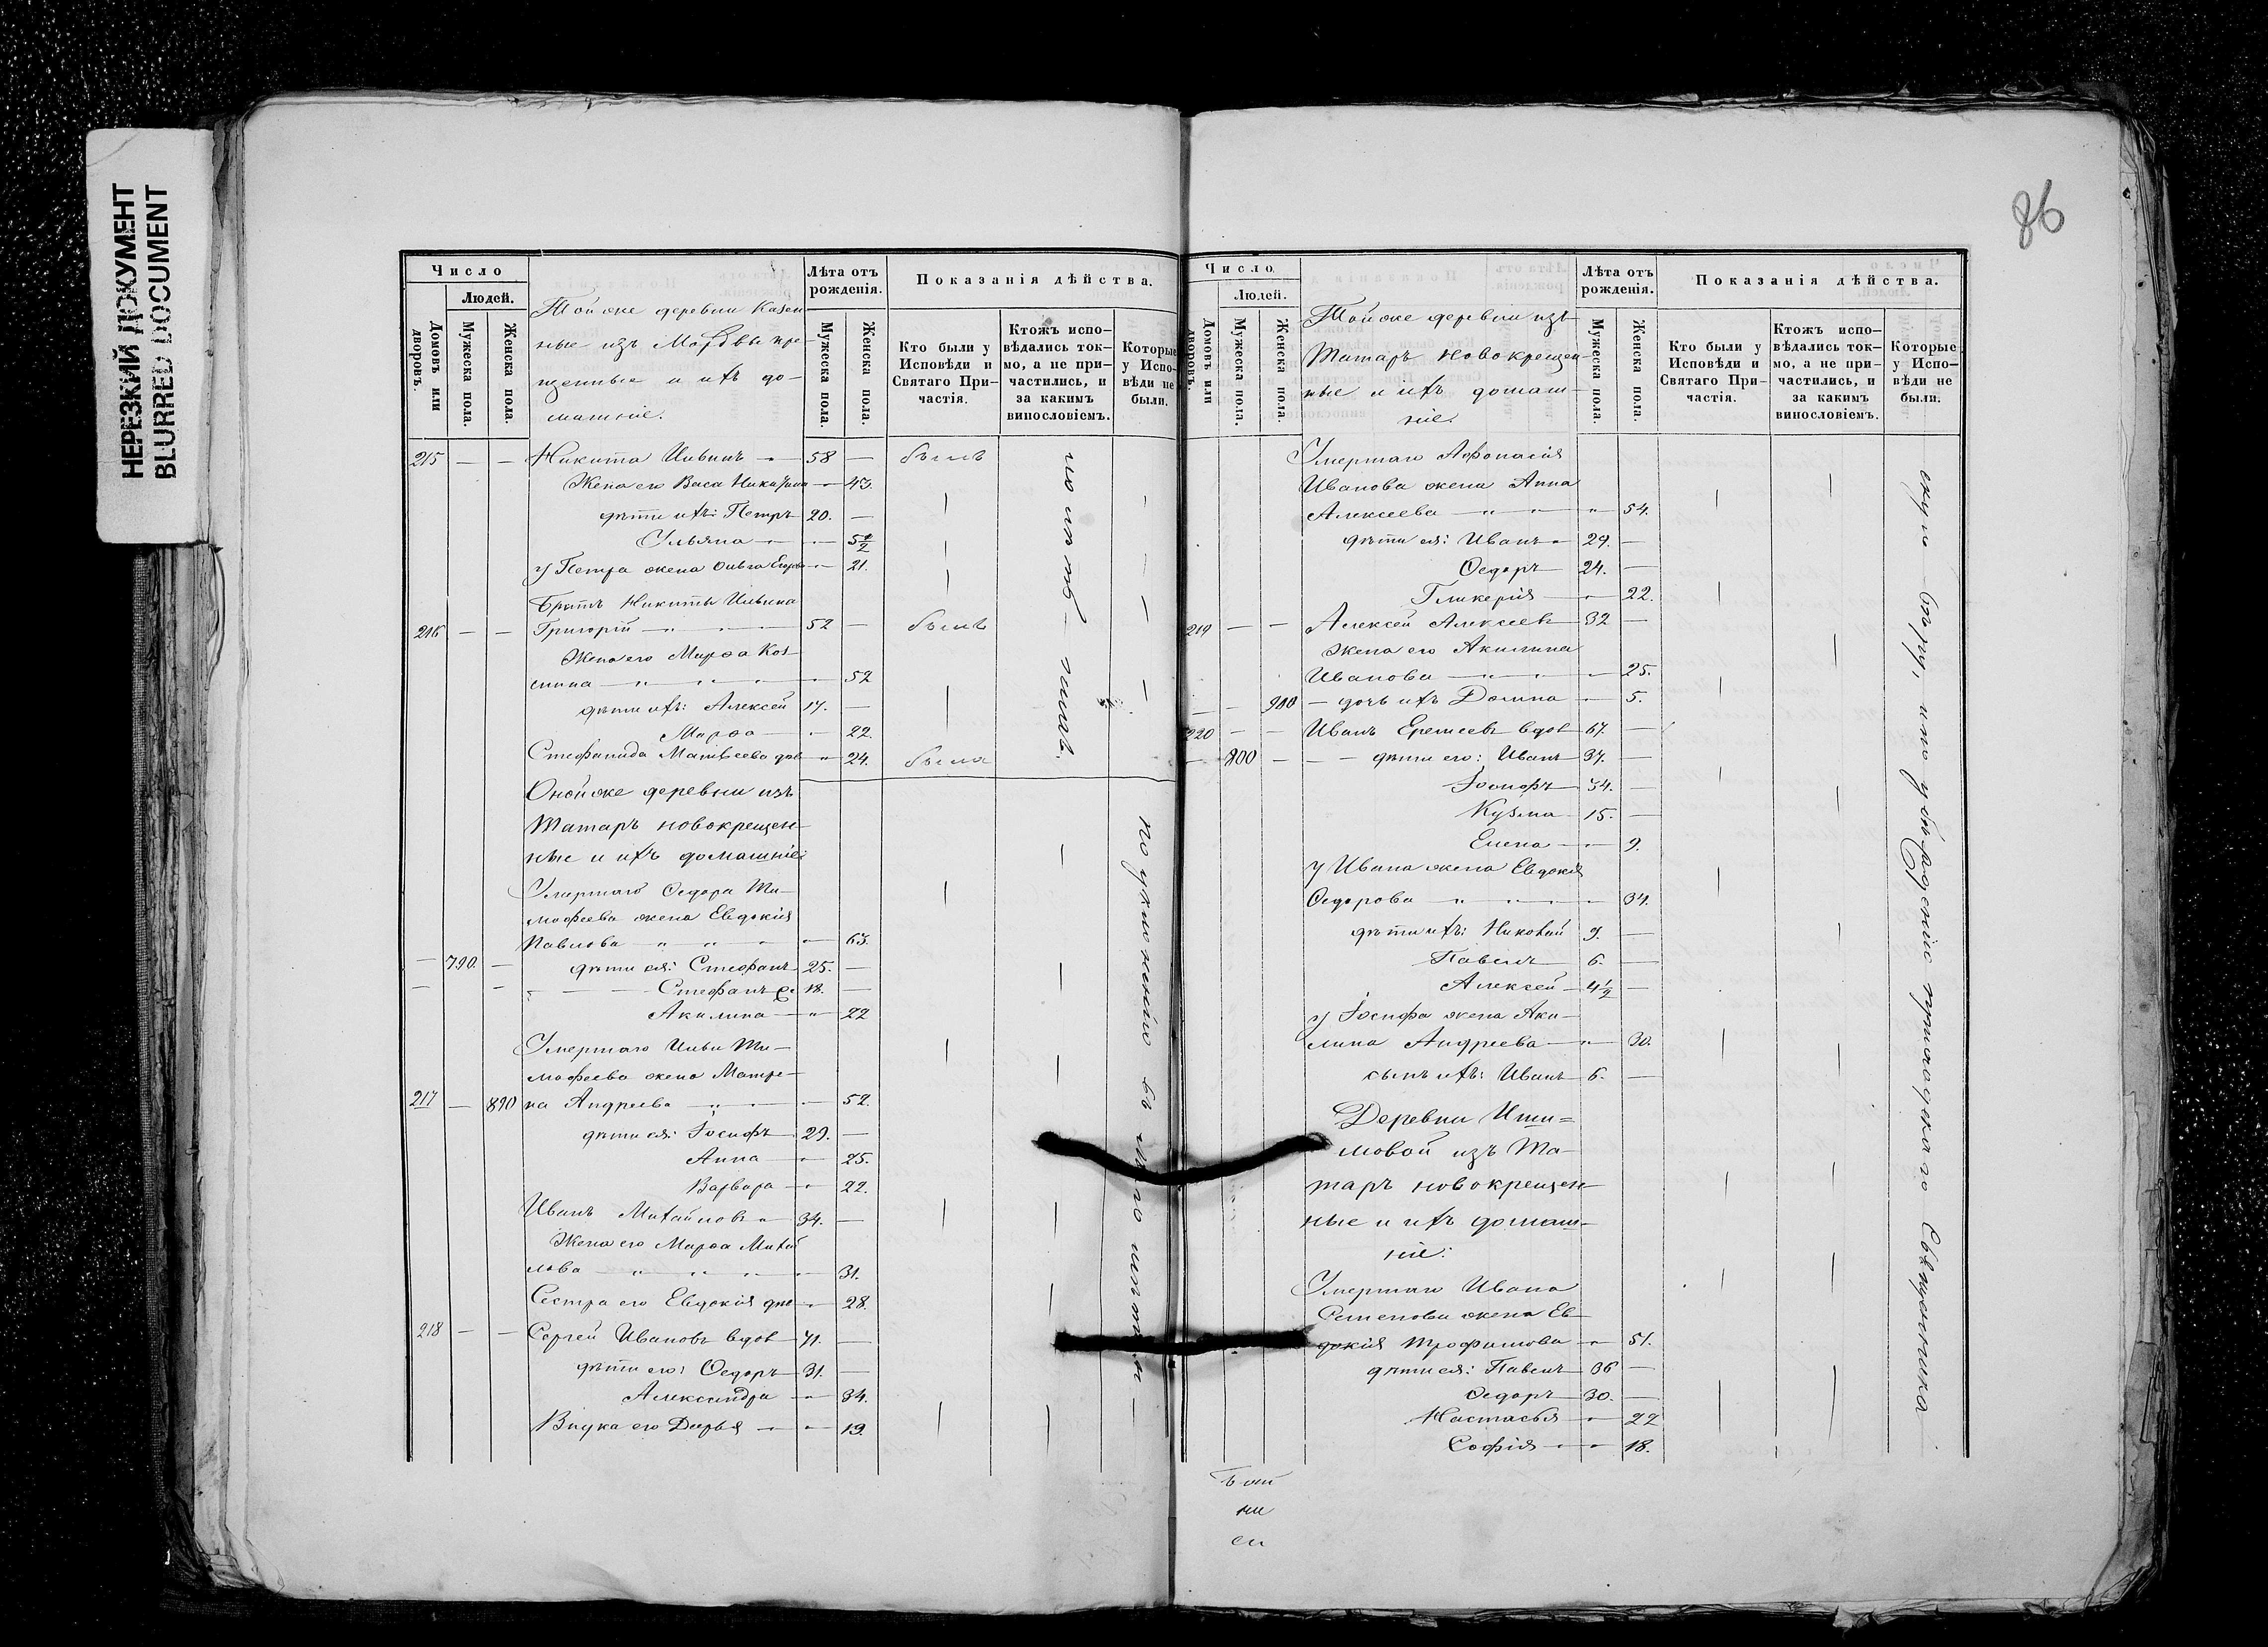 НЕРЕЗКИЙ ДОКУМЕНТ
BLURRED DOCUMENT
86
Число
Людей.
Домовъ или дворовъ.
Мужеска пола.
Женска пола.
Лѣта отъ рожденія.
Мужеска пола.
Женска пола.
Показанія дѣйства.
Кто были у Исповѣди и Святаго Причастія.
Ктожъ исповѣдались токмо, а не причастились, и за какимъ винословіемъ.
Которые у Исповѣди не были.
Той же деревни Казен
ные изъ Мордвы кре-
щенные и ихъ до-
машніе.
215 — — Никита Ильинъ — 58 — былъ
Жена его Васа — 43.
дѣти ихъ: Петръ 20. —
Ульяна — 5½
у Петра жена Ольга — 21.
Братъ Никиты Ильина
216 — — Григорій — " — " — 52 — былъ
Жена его Марѳа Коз-
мина — " — " — " — 52
дѣти ихъ: Алексей 17. —
Марѳа — 22.
Стефанида Матвеева — " 24. была
Оной же деревни изъ
Татаръ новокрещен-
ные и ихъ домашніе:
Умершаго Ѳедора Ти-
мофеева жена Евдокія
Павлова — " — " — 63.
— 790. — дѣти ея: Стефанъ 25. —
— — Стефанъ 18. —
Акилина — " 22
Умершаго Ильи Ти-
мофеева жена Матре-
217 — 890 на Андреева — " — 52.
дѣти ея: Іосифъ 29. —
Анна — 25.
Варвара — 22.
Иванъ Михайловъ 34. —
Жена его Марѳа Михай
лова — " — " — " — 31.
Сестра его Евдокія — 28.
218 — — Сергей Ивановъ вдов 71. —
дѣти его: Ѳедоръ 31. —
Александра — 34.
Внука его Дарья — 19.
по упложенію
Число
Людей.
Домовъ или дворовъ.
Мужеска пола.
Женска пола.
Лѣта отъ рожденія.
Мужеска пола.
Женска пола.
Показанія дѣйства.
Кто были у Исповѣди и Святаго Причастія.
Ктожъ исповѣдались токмо, а не причастились, и за какимъ винословіемъ.
Которые у Исповѣди не были.
Той же деревни изъ
Татаръ новокрещен-
ные и ихъ домаш-
ніе.
Умершаго Афонасія
Иванова жена Анна
Алексеева — " — " — " 54.
дѣти ея: Иванъ 29. —
Ѳедоръ 24. —
Гликерія — 22.
219 — — Алексей Алексеевъ 32 —
Жена его Акилина
Иванова — " — " — 25.
— — 900 — дочь ихъ Домна — 5.
220 — — Иванъ Еремеевъ вдов 67. —
— 800 — — дѣти его: Иванъ 37. —
Іосифъ 34. —
Кузма 15. —
Елена — 9.
у Ивана жена Евдокія
Ѳедорова — " — " — 34.
дѣти ихъ: Николай 9. —
Павелъ 6. —
Алексей 4½ —
у Іосифа жена Аки-
лина Андреева — " — 30.
сынъ ихъ: Иванъ 6. —
Деревни Иши=
мовой изъ Та-
таръ новокрещен-
ные и ихъ домаш-
ніе:
Умершаго Ивана
Семенова жена Ев-
докія Трофимова — 51.
дѣти ея: Павелъ 36 —
Ѳедоръ 30. —
Настасья — 22
Софія — 18.
Священника